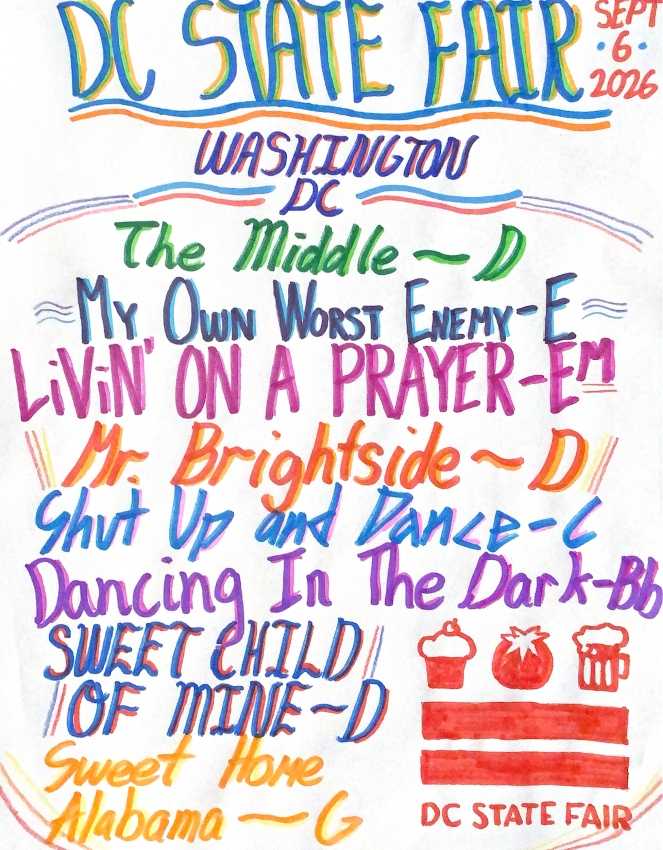 DC STATE FAIR
SEPT
·6·
2026
WASHINGTON
DC
The Middle ~ D
My Own Worst Enemy - E
LiViN' ON A PRAYER - Em
Mr. Brightside ~ D
Shut Up and Dance - C
Dancing In The Dark - Bb
SWEET CHILD
OF MINE ~ D
Sweet Home
Alabama ~ G
DC STATE FAIR